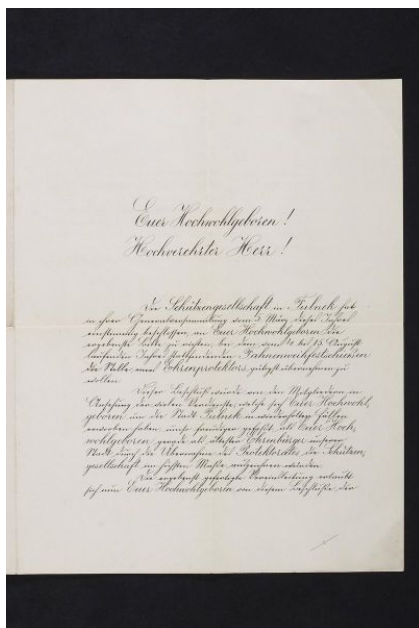 Euer Hochwohlgeboren!
Hochverehrter Herr!
Die Schützengesellschaft in Fulnek hat
in ihrer Generalversammlung vom 5. März dieses Jahres
einstimmig beschlossen, an Euer Hochwohlgeboren die
ergebenste Bitte zu richten, bei dem vom bis 15. August
laufenden Jahres stattfindenden Fahnenweihfestschiessen
die Stelle eines Ehrenprotektors, gütigst übernehmen zu
wollen.
Dieser Beschluß wurde von den Mitgliedern in
Ansehung der vielen Verdienste, welche sich Euer Hochwohl,
geboren um die Stadt Fulnek in wiederholten Fällen
erworben haben, umso freudiger gefaßt, als Euer Hoch,
wohlgeboren gerade als ältester Ehrenbürger unserer
Stadt durch die Übernahme des Protektorates die Schützen,
gesellschaft im höchsten Maße auszeichnen würden.
Die ergebenst gefertigte Vereinsleitung erlaubt
sich nun Euer Hochwohlgeboren von diesem Beschluße, den